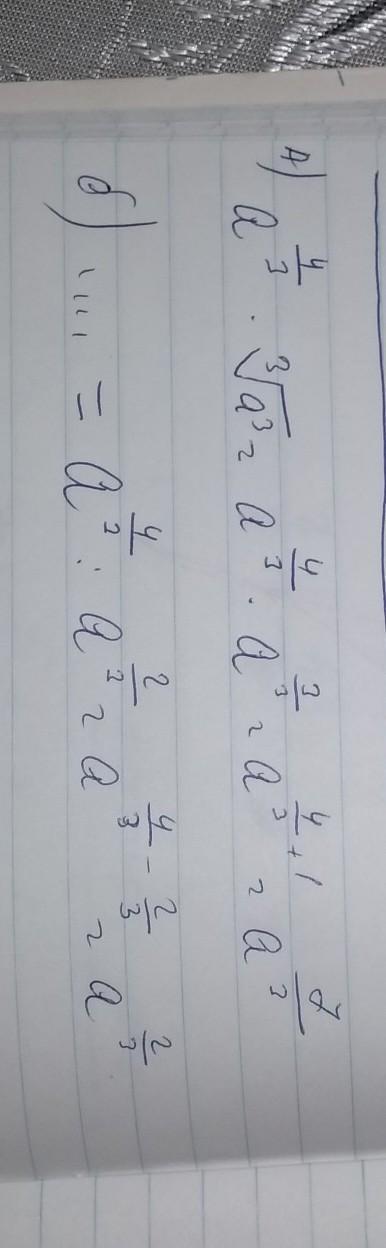 А) a^{4/3} · ∛a³ = a^{4/3} · a^{3/3} = a^{4/3 + 1} = a^{7/3}
б) .... = a^{4/3} : a^{2/3} = a^{4/3 - 2/3} = a^{2/3}